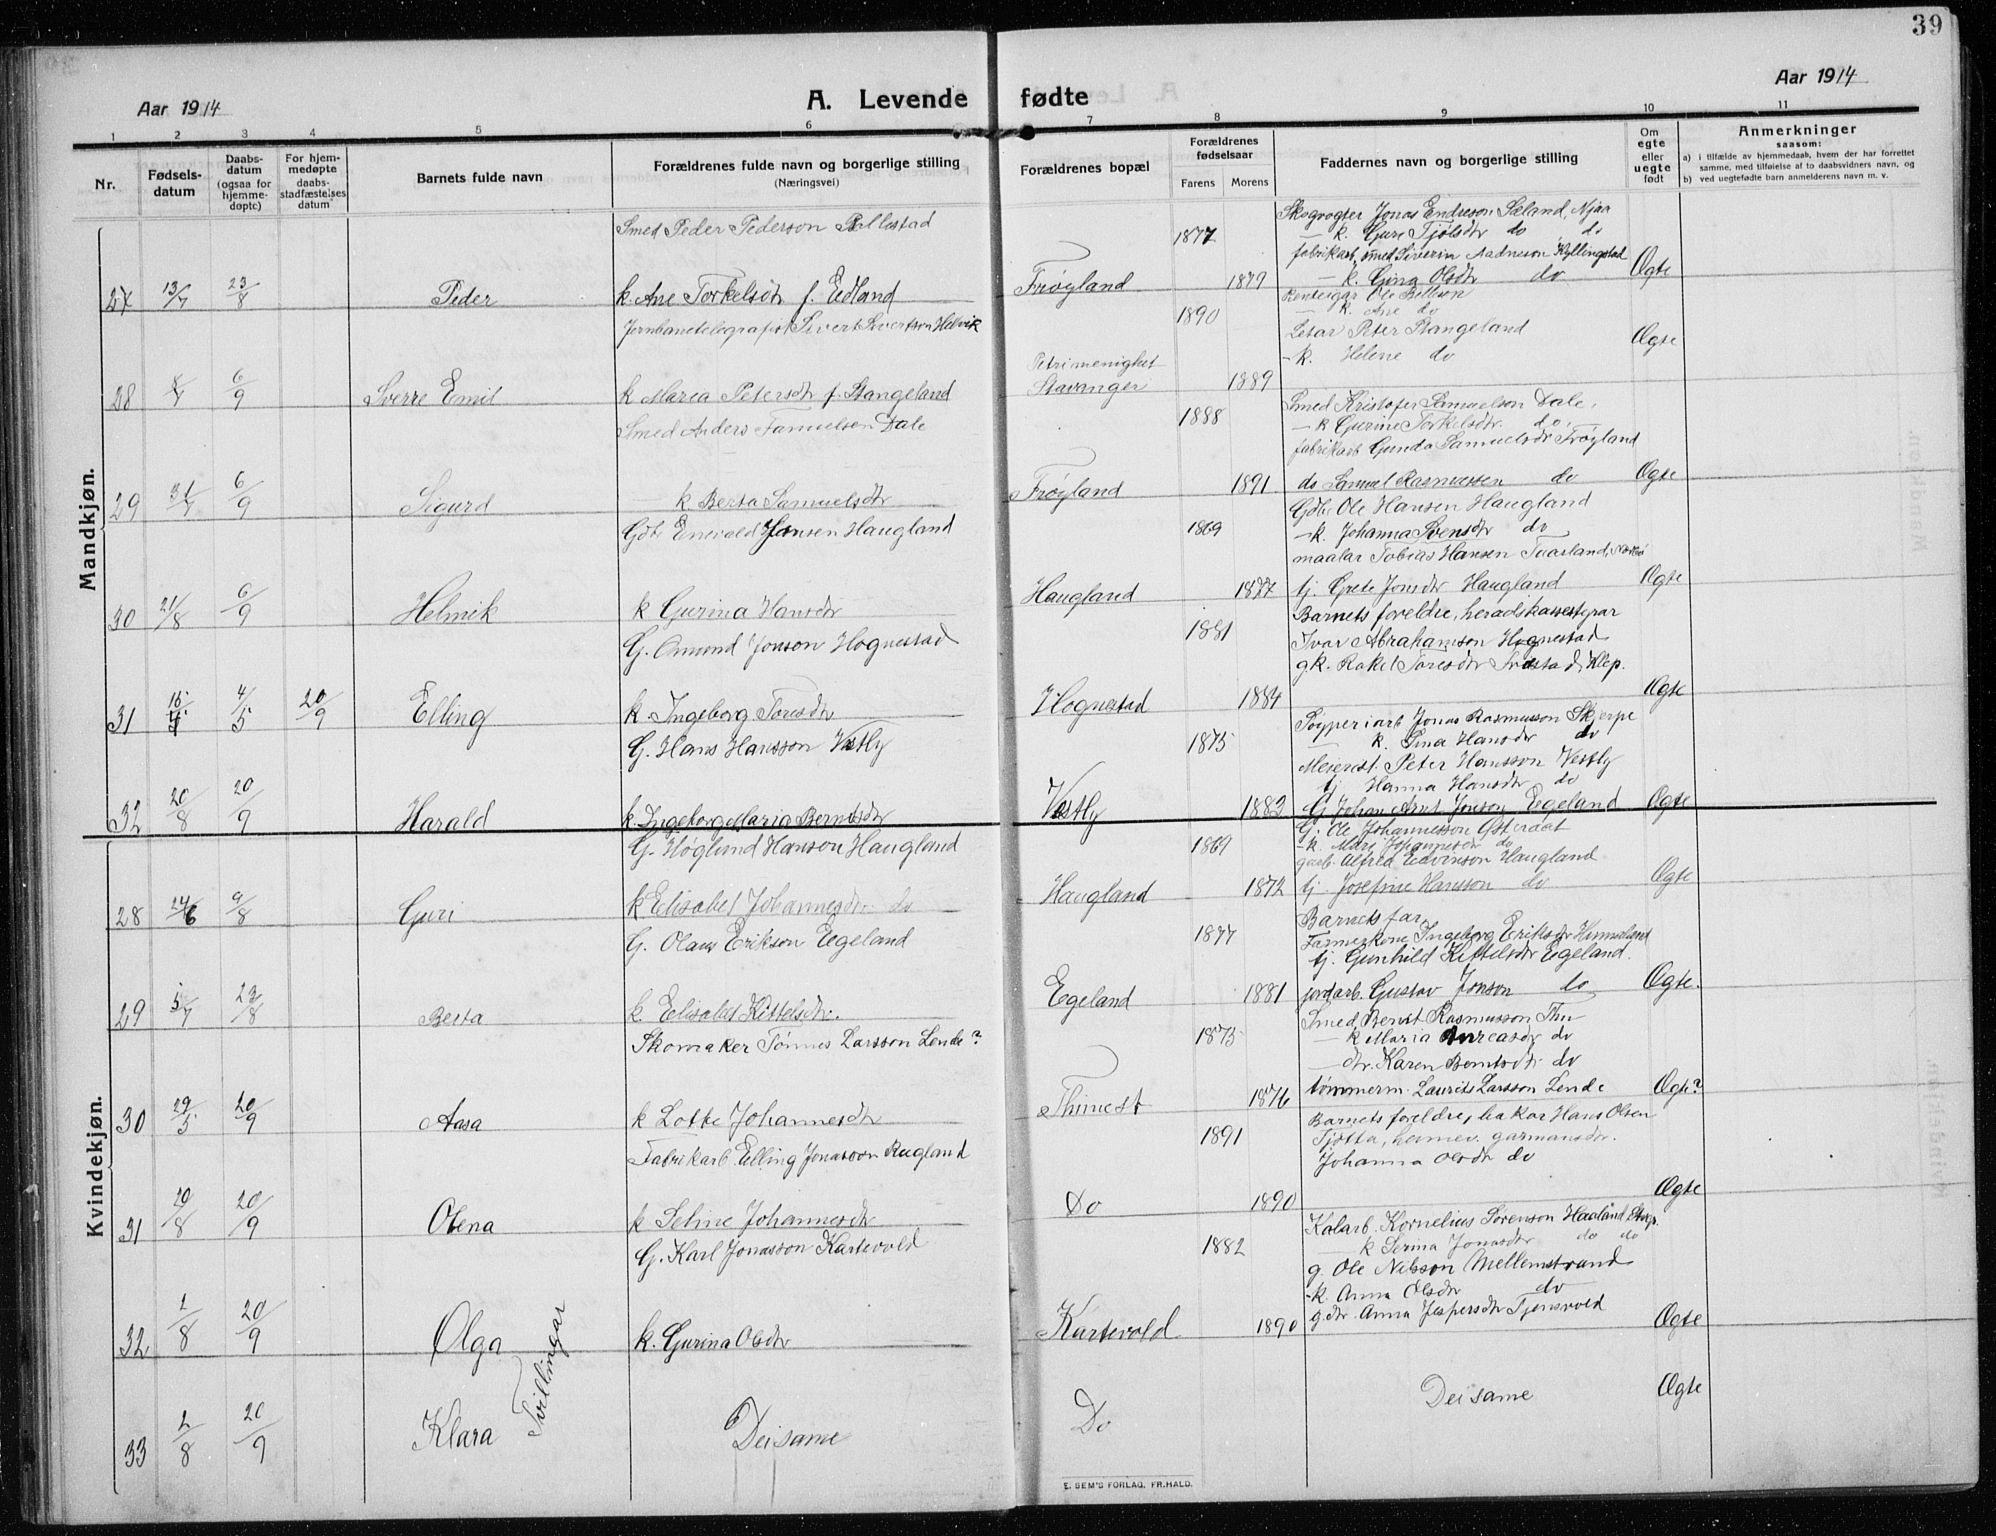 39
Aar 1914
A. Levende fødte
Aar 1914
1 2 3 4 5 6 7 8 9 10 11
Nr.
Fødsels-
datum
Daabs-
datum
(ogsaa for
hjemme-
døpte)
For hjem-
medøpte
daabs-
stadfæstelses
datum
Barnets fulde navn
Forældrenes fulde navn og borgerlige stilling
(Næringsvei)
Forældrenes bopæl
Forældrenes
fødselsaar
Farens Morens
Faddernes navn og borgerlige stilling
Om
egte
eller
uegte
født
Anmerkninger
saasom:
a) i tilfælde av hjemmedaab, hvem der har forrettet
samme, med tilføielse af to daabsvidners navn, og
b) ved uegtefødte barn anmelderens navn m. v.
Mandkjøn.
Smed Peder Pederson
1877
Skogvogter Jonas Endreson Sæland, Njaa
– k. Guri Tjølsdtr do do
fabrikarb. smed Siverin Aadneson Kyllingstad
– k. Gina Olsdtr do
27 13/7 23/8 Peder k. Ane Torkelsdtr f. Edland Frøyland 1879 Ægte
Jernbanetelegrafist Sivert Sivertson Helvik
1890
Ole
– k. Ane do
Peter Stangeland
– k. Helene do
28 6/9 Sverre Emil k Marea Petersdtr f. Stangeland
Petri menighet
Stavanger 1889 Ægte
Smed Anders Samuelsen Dale
1888
Smed Kristofer Samuelson Dale,
– k Gurine Torkelsdtr do
fabrikarb Gunda Samuelsdtr Frøyland
do Samuel Rasmussen do
29 31/7 6/9 Sigurd k Berta Samuelsdtr Frøyland 1891 Ægte
Gdb. Enevald Hansen Haugland
1869
Gdb. Ole Hansen Haugland
– k. Johanna Svensdtr do
maalar Tobias Hansen
tj. Grete Jonsdtr Haugland
30 21/8 6/9 Helmik k Gurina Hansdtr Haugland 1877 Ægte
G. Omund Jonson Hognestad
1881
Barnets foreldre, heradskassestyrar
Ivar Abrahamson Hognestad
gk. Rakel Toresdtr Klep.
31 4/5 20/9 Elling k Ingeborg Toresdtr Hognestad 1884 Ægte
G. Hans Hansson Vestly
1875
Jonas Rasmusson Skjerpe
– k. Sina Hansdtr do
Meierist. Peter Hansson Vestly
tj Hanna Hansdtr do
G Johan Arnt Jonson Egeland
32 20/8 20/9 Harald k. Ingeborg Maria Berntsdtr Vestly 1883 Ægte
Kvindekjøn.
G. Høglund Hanson Haugland
1869
G. Ole Johannesson Osteraat
– k. Mari Johannesdtr do
Alfred Edvinson Haugland
tj. Josefine Hansson do
28 24/6 9/8 Guri k Elisabet Johannesdtr do Haugland 1872 Ægte
G. Olaus Erikson Egeland
1877
Barnets far,
Farmerkone Ingeborg Eriksdtr
tj. Gunhild Kittelsdtr Egeland.
jordarb. Gustav Jonson do
29 5/7 23/8 Berta k Elisabet Kittelsdtr. Egeland 1881 Ægte.
Skomaker Tønnes Larsson Lende?
1875
Smed Bernt Rasmusson Thu
– k Maria Andreasdtr do
– dtr. Karen Berntsdtr do
tømmerm. Laurits Larsson Lende
30 29/5 20/9 Aasa k Lotte Johannesdtr Thimest 1876 Ægte?
Fabrikarb. Elling Jonasson Rugland
1891
Barnets foreldre, bakar Hans Olsen
Tjøtta, garmansdtr.
Johanna Olsdtr do
31 20/8 20/9 Olena k Seline Johannesdtr Do 1890 Ægte
G. Karl Jonasson Kartevold
1882
Kalarb. Kornelius Sørenson Haaland,
– k Serina Jonasdtr do do
g. Ole Nilsson Mellemstrand
– k. Anna Olsdtr do
g. dtr. Anna Jespersdtr Tjensvold
32 1/8 20/9 Olga k. Gurina Olsdtr Kartevold 1890 Ægte
Tvillingar
33 2/8 20/9 Klara Dei same Do Dei same Ægte
E. SEM'S FORLAG, FR.HALD.